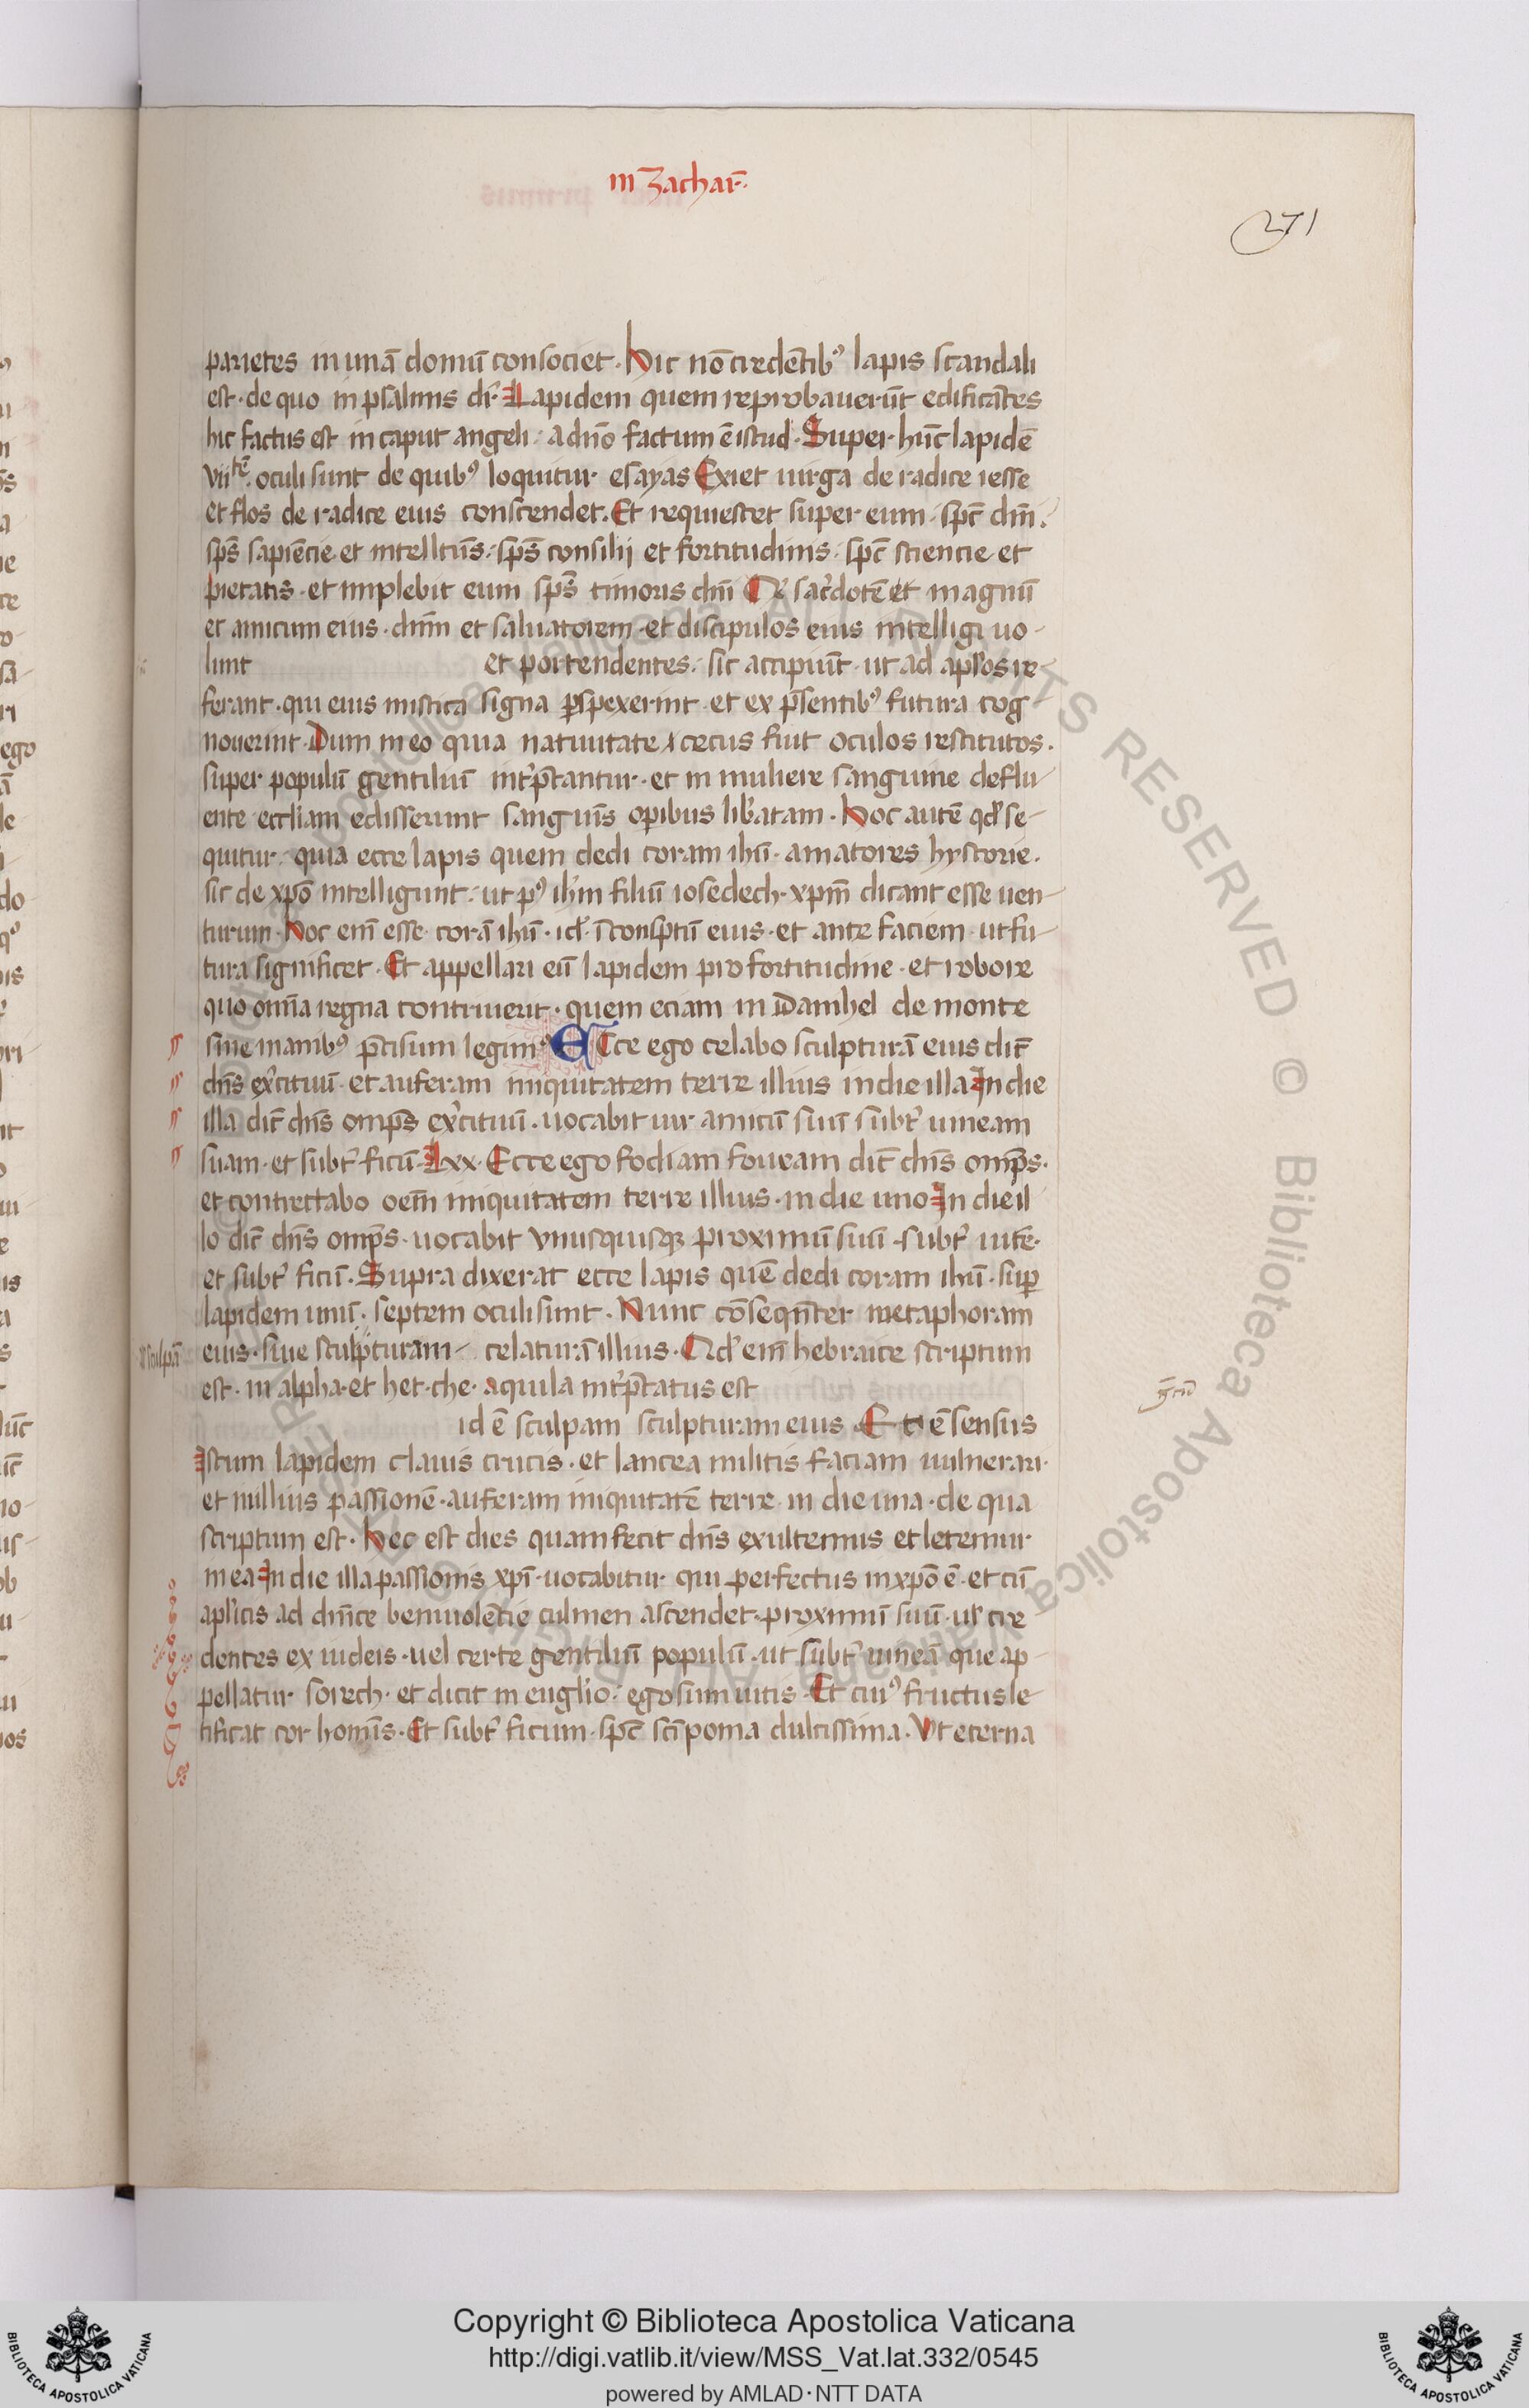 in Zachar̄.
271
parietes in unā domū consociet. hic nō credētib⁹ lapis scandali
est. de quo in psalmis dr̄. Lapidem quem reprobauerūt edificātes
hic factus est in caput anguli. a dn̄o factum ē istud. Super hūc lapidē
vii tē. oculi sunt de quib⁹ loquitur esayas Exiet uirga de radice iesse
et flos de radice eius conscendet. Et requiescet super eum. spc̄ dm̄.
sps̄ sapiēcie et intellctūs. sps̄ consilij et fortitudinis. spc̄ sciencie et
pietatis. et implebit eum sps̄ timoris dm̄ sac̓dotē et magnū
et amicum eius. dnm̄ et saluatorem. et discipulos eius intelligi uo-
lunt et portendentes. sic accipiūt. ut ad apl̄os re-
ferant. qui eius mistica signa p̱spexerint. et ex p̄sentib⁹ futura cog-
nouerint. Dum in eo qui a natiuitate cecus fuit oculos restitutos.
super populū gentiliū int̓p̄tantur. et in muliere sanguine deflu-
ente eccl̄iam edisserunt sanguīs opibus lib̓atam. hoc autē qd̓ se-
quitur. quia ecce lapis quem dedi coram ihū. amatores hystorie.
sic de xpō intelligunt. ut p⁹ ih̓m filiū iosedech. xpm̄ dicant esse uen-
turum. hoc em̄ esse corā ihū. id̓. ī conspctū eius. et ante faciem. ut fu-
tura significet. Et appellari eū lapidem pro fortitudine. et robore
quo om̄ia regna contriuerit. quem eciam in Danihel de monte
sine manib⁹ p̄cisum legim⁹. ECce ego celabo sculpturā eius dic̄
dn̄s ex̓cituū. et auferam iniquitatem terre illius in die illa In die
illa dic̄ dn̄s omps̄ ex̓cituū. uocabit uir amicū suū subt̓ uineam
suam. et subt̓ ficū. Lxx. Ecce ego fodiam foueam dic̄ dn̄s omps̄.
et contrectabo oem̄ iniquitatem terre illius. in die uno In die il
lo dic̄ dn̄s omps̄. uocabit vnusquisqꝫ proximū suū. subt̓ uitē.
et subt̓ ficū. Supra dixerat ecce lapis quē dedi coram ihū. sup̱
lapidem unū. septem oculi sunt. Nunc cōseqn̄ter metaphoram
eius. siue sculpturam celaturā illius. Qd̓ em̄ hebraice scriptum
est. in alpha. et het. che. aquila int̓p̄tatus est
id ē sculpam sculpturam eius Et ē sensus
Istum lapidem clauis crucis. et lancea militis faciam uulnerari.
et in illius passionē. auferam iniquitatē terre. in die una. de qua
scriptum est. hec est dies quam fecit dn̄s exultemus et letemur
in ea In die illa passionis xpī. uocabitur qui perfectus in xpō ē. et cū
apl̓icis ad dn̄ice beniuolēcie culmen ascendet. proximū suū. ul̓ cre
dentes ex iudeis. uel certe gentiliū populū. ut subt̓ uineā que ap-
pellatur sorech. et dicit in eug̓lio. ego sum uitis. Et cui⁹ fructus le-
tificat cor homīs. Et subt̓ ficum. spc̄ sc̄i poma dulcissima. Vt eterna
Copyright © Biblioteca Apostolica Vaticana
http://digi.vatlib.it/view/MSS_Vat.lat.332/0545
powered by AMLAD·NTT DATA
BIBLIOTECA APOSTOLICA VATICANA
BIBLIOTECA APOSTOLICA VATICANA